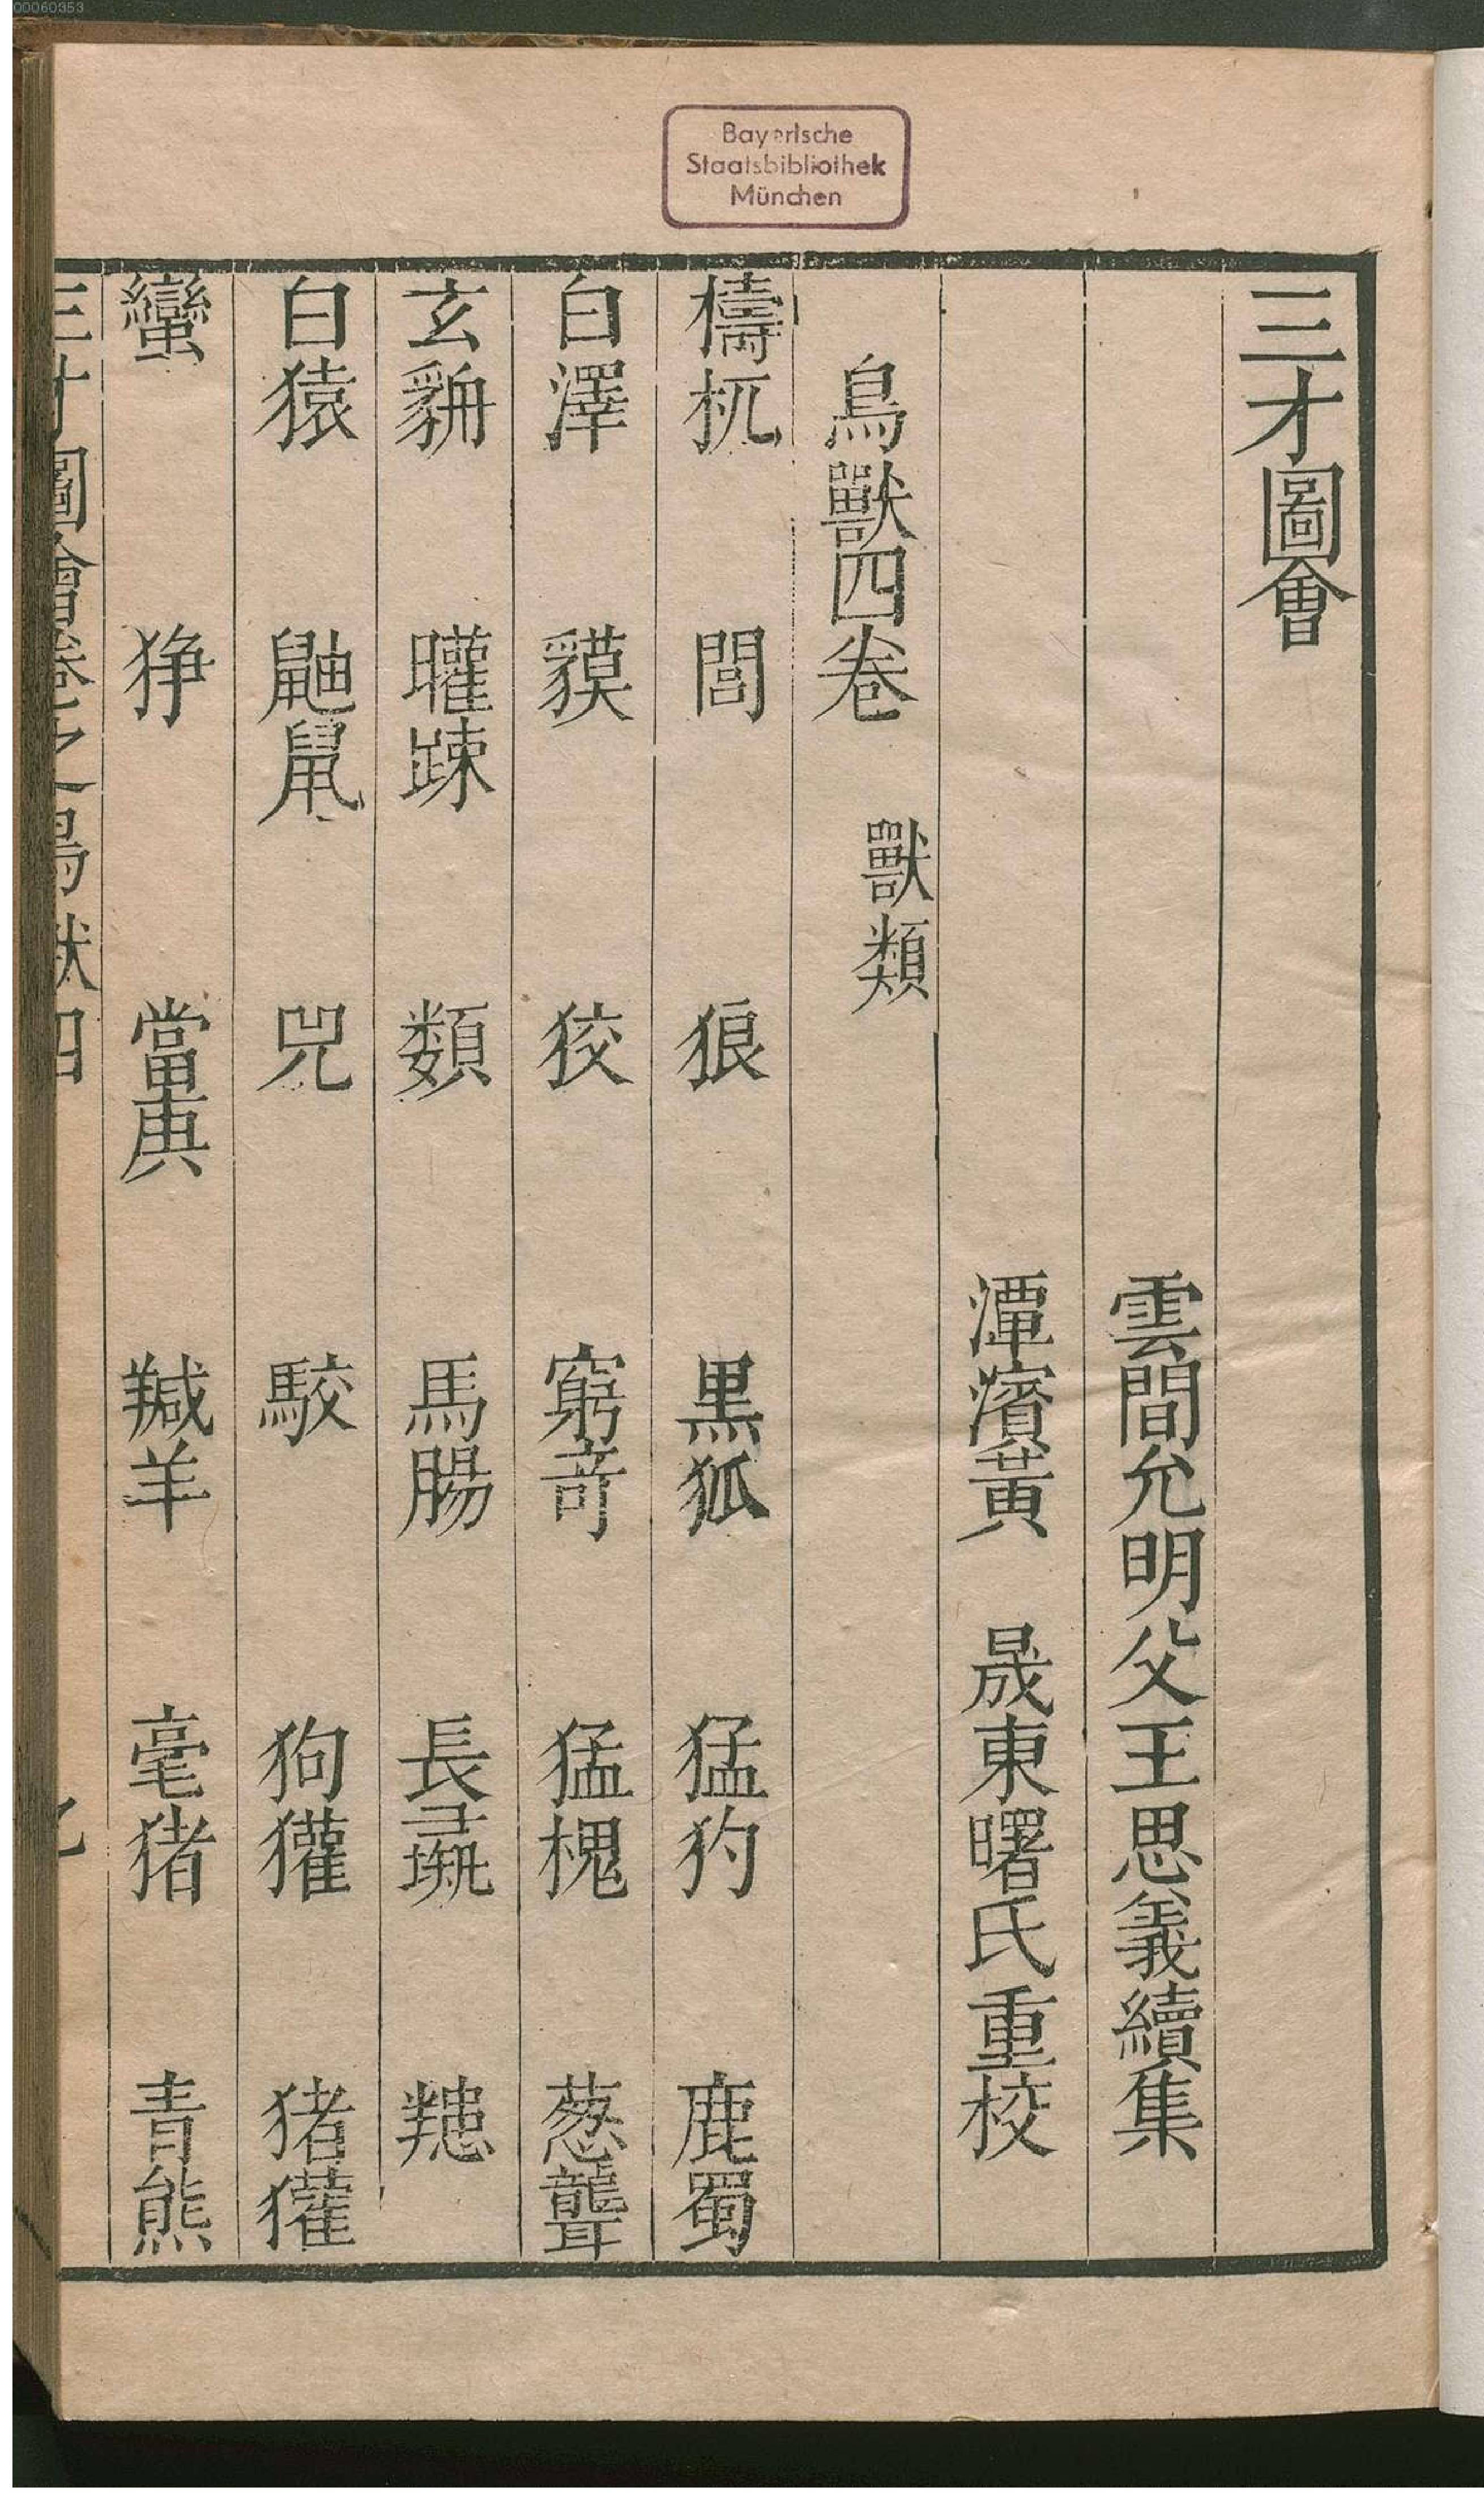 00060353
Bayerische
Staatsbibliothek
München
三才圖會
雲間允明父王思義續集
潭濱黃 晟東曙氏重校
鳥獸四卷 獸類
檮杌 閭 狼 黒狐 猛豹 鹿蜀
白澤 貘 狡 窮竒 猛槐 葱聾
玄貈 㹕踈 類 馬腸 長彘 羬
白猿 鼬鼠 兕 駮 狗獾 猪獾
蠻 狰 當庚 羬羊 毫猪 青熊
三才圖會卷之鳥獸四